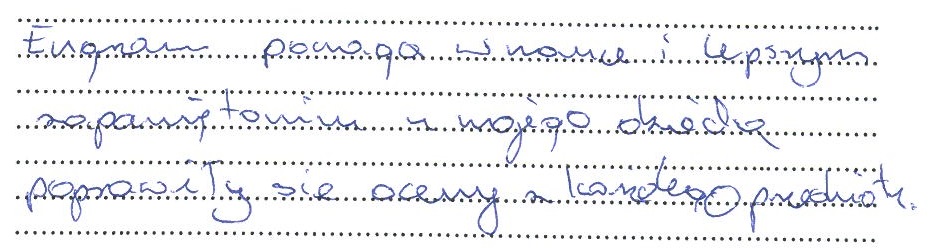 Engram pomaga w nauce i lepszym
zapamiętaniu u mojego dziecka
poprawiły się oceny z każdego przedmiotu.